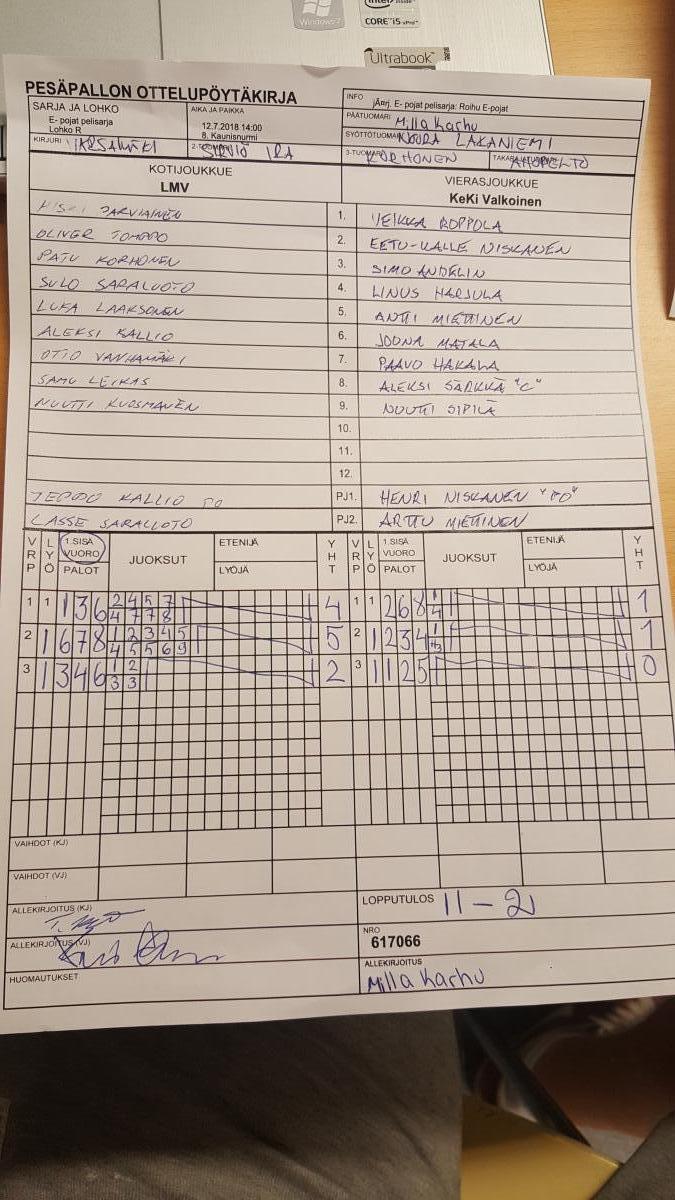 Windows 7
CORE i5 vPro
Ultrabook
PESÄPALLON OTTELUPÖYTÄKIRJA
SARJA JA LOHKO
E- pojat pelisarja
Lohko R
AIKA JA PAIKKA
12.7.2018 14:00
8. Kaunisnurmi
INFO
jÄrrj. E- pojat pelisarja: Roihu E-pojat
PÄÄTUOMARI Milla Karhu
SYÖTTÖTUOMARI NOORA LAKANIEMI
KIRJURI
SIRVIÖ IRA
KORHONEN
AHOPELTO
KOTIJOUKKUE
LMV
VIERASJOUKKUE
KeKi Valkoinen
JARVIAINEN 1. VEIKKA ROPPOLA
OLIVER TOMPPO 2. EETU-KALLE NISKANEN
PATU KORHONEN 3. SIMO ANDELIN
SULO SARALUOTO 4. LINUS HARJULA
LUKA LAAKSONEN 5. ANTTI MIETTINEN
ALEKSI KALLIO 6. JOONA MATALA
OTTO VANHAMÄKI 7. PAAVO HAKALA
SAMU LEIKAS 8. ALEKSI SÄRKKÄ "C"
NUUTTI KUOSMANEN 9. NUUTTI SIPILÄ
10.
11.
12.
TEPPO KALLIO PJ1. HENRI NISKANEN "PO"
LASSE SARALUOTO PJ2. ARTTU MIETTINEN
VRP LYÖ 1.SISÄ VUORO PALOT JUOKSUT ETENIJÄ LYÖJÄ YHT VRP LYÖ 1.SISÄ VUORO PALOT JUOKSUT ETENIJÄ LYÖJÄ YHT
1 1 1 3 6 2 4 5 7 4 1 1 2 6 8 1 1
4 7 7 8 4
2 1 6 7 8 1 2 3 4 5 5 2 1 2 3 4 1 1
4 5 5 6 9
3 1 3 4 6 1 2 2 3 1 1 2 5 0
3 3
VAIHDOT (KJ)
VAIHDOT (VJ)
ALLEKIRJOITUS (KJ)
LOPPUTULOS 11 - 2
ALLEKIRJOITUS (VJ)
NRO
617066
HUOMAUTUKSET
ALLEKIRJOITUS
Milla Karhu